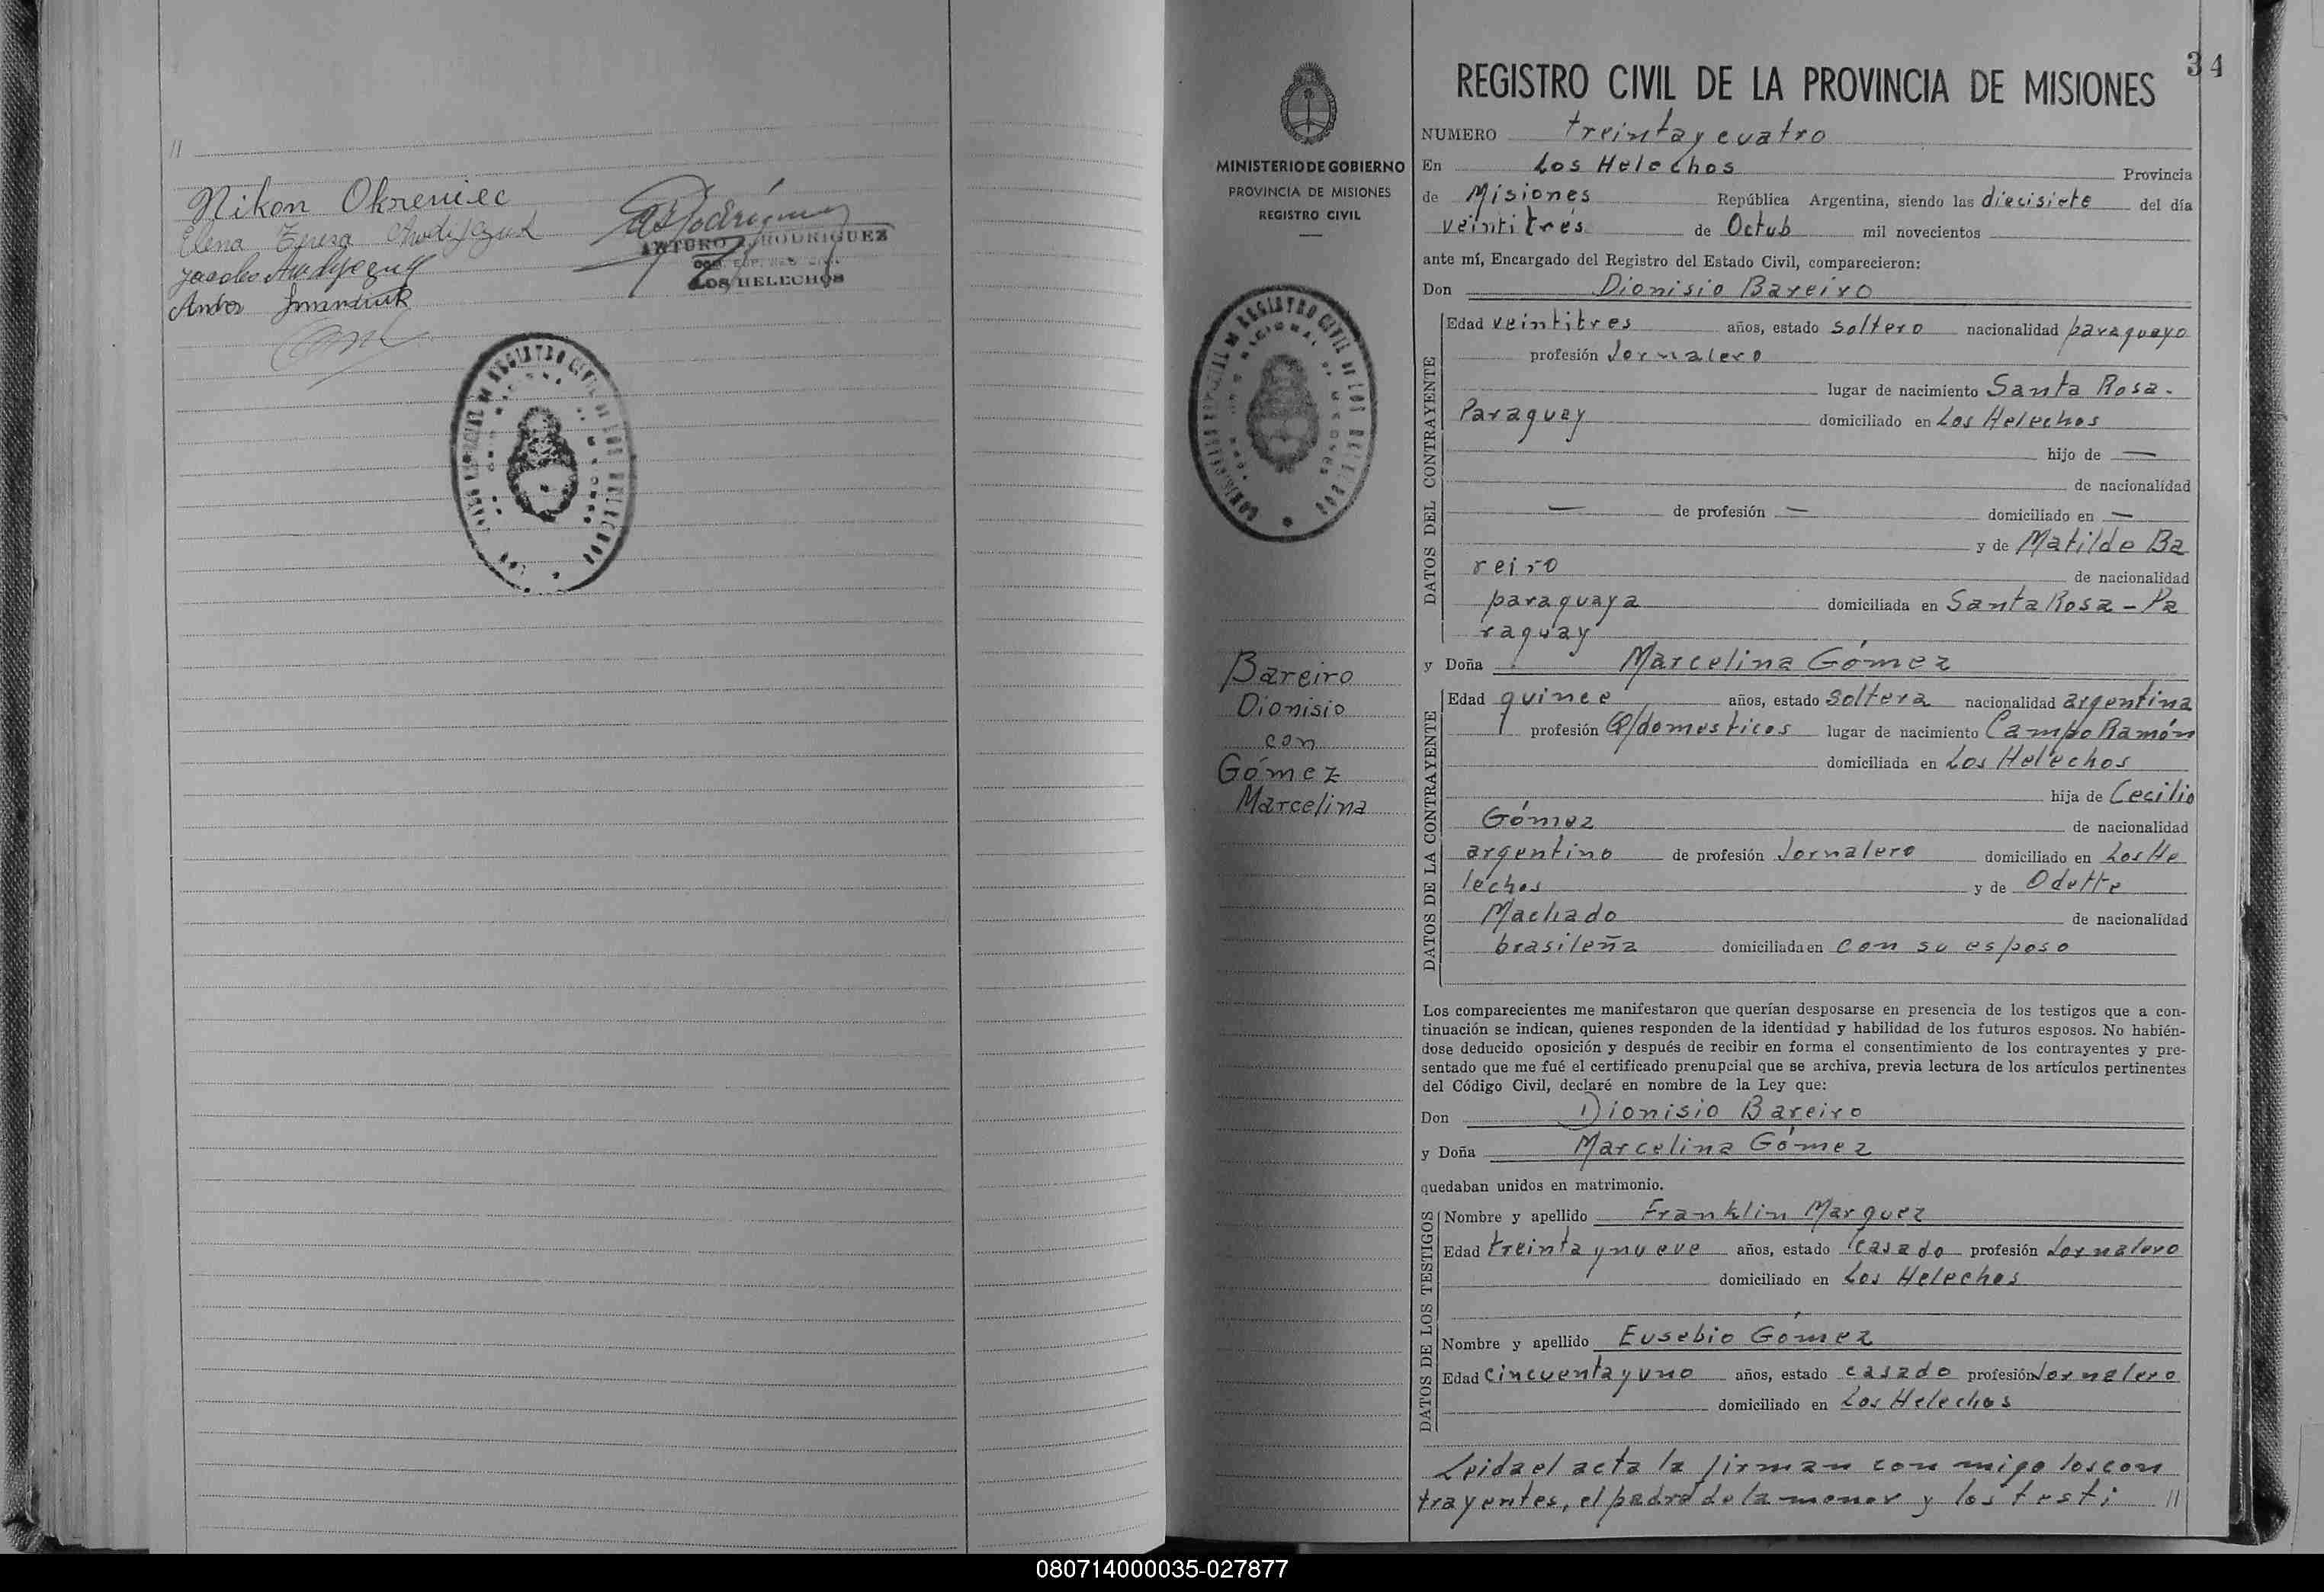 //
Nikon Okreniec
Elena Teresa
Jacobo
ARTURO RODRIGUEZ
LOS HELECHOS
34
REGISTRO CIVIL DE LA PROVINCIA DE MISIONES
MINISTERIO DE GOBIERNO
PROVINCIA DE MISIONES
REGISTRO CIVIL
Bareiro
Dionisio
con
Gómez
Marcelina
NUMERO treinta y cuatro
En Los Helechos Provincia
de Misiones República Argentina, siendo las diecisiete del día
veintitrés de Octub mil novecientos
ante mí, Encargado del Registro del Estado Civil, comparecieron:
Don Dionisio Bareiro
DATOS DEL CONTRAYENTE
Edad veintitres años, estado soltero nacionalidad paraguayo
profesión Jornalero
lugar de nacimiento Santa Rosa-
Paraguay domiciliado en Los Helechos
hijo de —
de nacionalidad
— de profesión — domiciliado en —
y de Matilde Ba
reiro de nacionalidad
paraguaya domiciliada en Santa Rosa - Pa
raguay
y Doña Marcelina Gómez
DATOS DE LA CONTRAYENTE
Edad quince años, estado soltera nacionalidad argentina
profesión Q/domesticos lugar de nacimiento Campo Ramón
domiciliada en Los Helechos
hija de Cecilio
Gómez de nacionalidad
argentino de profesión Jornalero domiciliado en Los He
lechos y de Odette
Machado de nacionalidad
brasileña domiciliada en con su esposo
Los comparecientes me manifestaron que querían desposarse en presencia de los testigos que a con-
tinuación se indican, quienes responden de la identidad y habilidad de los futuros esposos. No habién-
dose deducido oposición y después de recibir en forma el consentimiento de los contrayentes y pre-
sentado que me fué el certificado prenupcial que se archiva, previa lectura de los artículos pertinentes
del Código Civil, declaré en nombre de la Ley que:
Don Dionisio Bareiro
y Doña Marcelina Gómez
quedaban unidos en matrimonio.
DATOS DE LOS TESTIGOS
Nombre y apellido Franklin Marquez
Edad treinta y nueve años, estado casado profesión Jornalero
domiciliado en Los Helechos
Nombre y apellido Eusebio Gómez
Edad cincuenta y uno años, estado casado profesión Jornalero
domiciliado en Los Helechos
Leida el acta la firman con migo los con
trayentes, el padre de la menor y los testi //
080714000035-027877